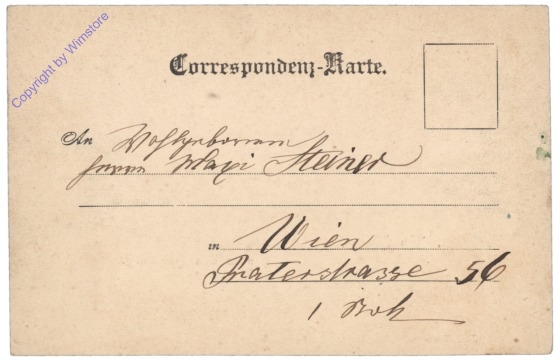 Copyright by Wimstore
Correspondenz-Karte.
An Wohlgeborenen
Herrn Maxi Steiner
in Wien
Praterstrasse 56
1 Stok